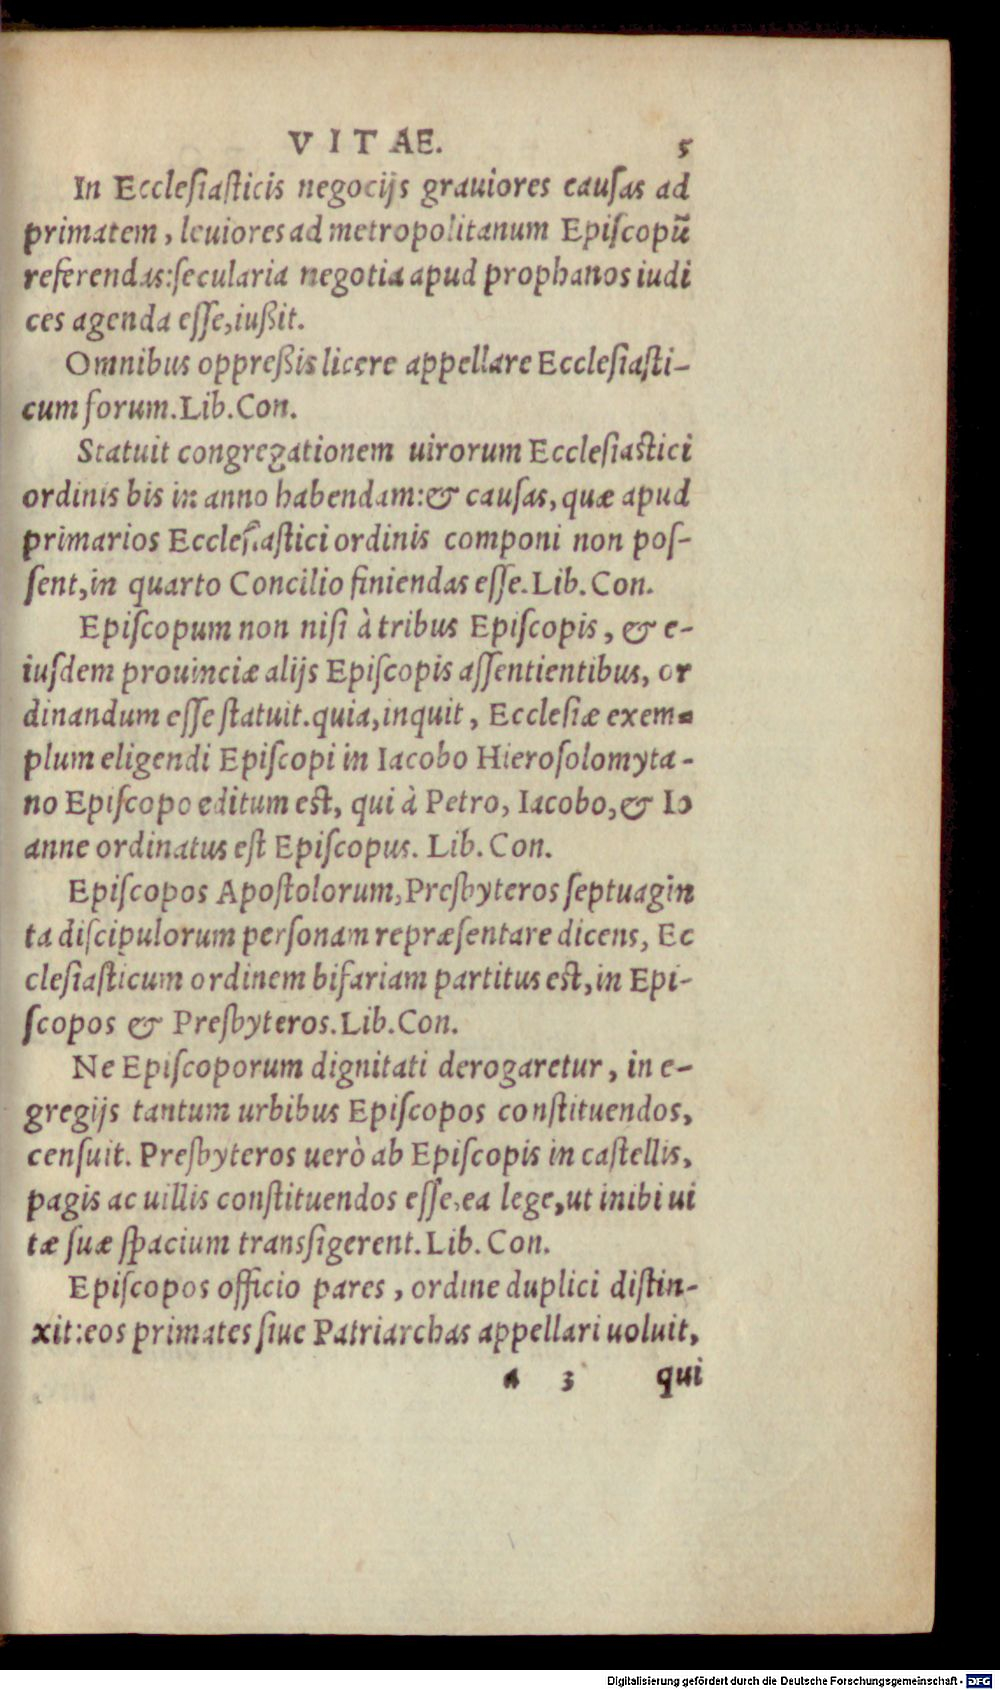 VITAE. 5
In Eccleſiaſticis negocijs grauiores cauſas ad
primatem, leuiores ad metropolitanum Epiſcopũ
referendas:ſecularia negotia apud prophanos iudi
ces agenda eſſe,iußit.
Omnibus oppreßis licere appellare Eccleſiaſti-
cum forum.Lib.Con.
Statuit congregationem uirorum Eccleſiaſtici
ordinis bis in anno habendam:& cauſas, quæ apud
primarios Eccleſiaſtici ordinis componi non poſ-
ſent,in quarto Concilio finiendas eſſe.Lib.Con.
Epiſcopum non niſi à tribus Epiſcopis, & e-
iuſdem prouinciæ alijs Epiſcopis aſſentientibus, or
dinandum eſſe ſtatuit.quia,inquit, Eccleſiæ exem-
plum eligendi Epiſcopi in Iacobo Hieroſolomyta-
no Epiſcopo editum eſt, qui à Petro, Iacobo,& Io
anne ordinatus eſt Epiſcopus. Lib.Con.
Epiſcopos Apoſtolorum,Preſbyteros ſeptuagin
ta diſcipulorum perſonam repræſentare dicens, Ec
cleſiaſticum ordinem bifariam partitus eſt,in Epi-
ſcopos & Preſbyteros.Lib.Con.
Ne Epiſcoporum dignitati derogaretur, in e-
gregijs tantum urbibus Epiſcopos conſtituendos,
cenſuit. Preſbyteros uerò ab Epiſcopis in caſtellis,
pagis ac uillis conſtituendos eſſe,ea lege,ut inibi ui
tæ ſuæ ſpacium transſigerent.Lib.Con.
Epiſcopos officio pares, ordine duplici diſtin-
xit:eos primates ſiue Patriarchas appellari uoluit,
A 3 qui
Digitalisierung gefördert durch die Deutsche Forschungsgemeinschaft - DFG